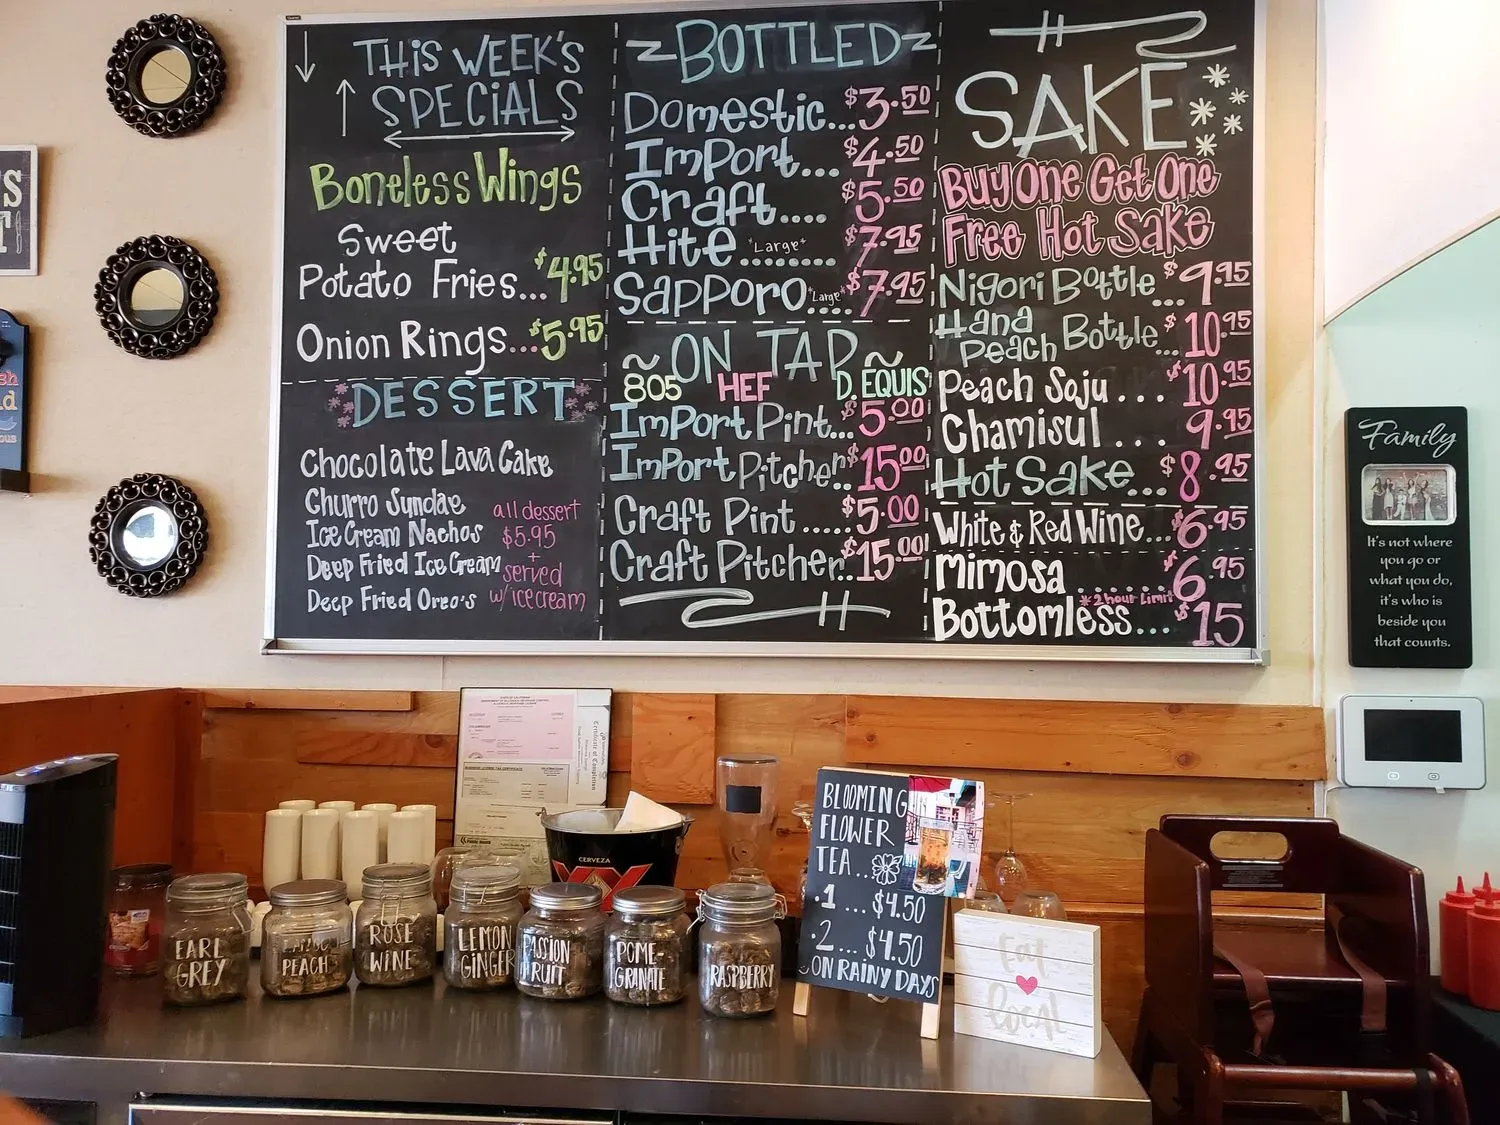 THIS WEEK'S
SPECIALS
Boneless Wings
Sweet
Potato Fries...$4.95
Onion Rings...$5.95
DESSERT
Chocolate Lava Cake
Churro Sundae
Ice Cream Nachos
Deep Fried Ice Cream
Deep Fried Oreo's
all dessert
$5.95
+
served
w/ ice cream
BOTTLED
Domestic...$3.50
Import...$4.50
Craft....$5.50
Hite *Large*........$7.95
Sapporo *Large*....$7.95
~ON TAP~
805 HEF D. EQUIS
Import Pint...$5.00
Import Pitcher $15.00
Craft Pint.....$5.00
Craft Pitcher..$15.00
SAKE
Buy One Get One
Free Hot Sake
Nigori Bottle...$9.95
Hana
Peach Bottle...$10.95
Peach Soju...$10.95
Chamisul...9.95
Hot Sake...$8.95
White & Red Wine...$6.95
Mimosa........$6.95
*2 hour Limit
Bottomless...$15
Family
It's not where
you go or
what you do,
it's who is
beside you
that counts.
CERVEZA
XX
EARL
GREY
PEACH
ROSÉ
WINE
LEMON
GINGER
PASSION
FRUIT
POME-
GRANATE
RASPBERRY
BLOOMING
FLOWER
TEA...
·1...$4.50
·2...$4.50
ON RAINY DAYS
Eat
local